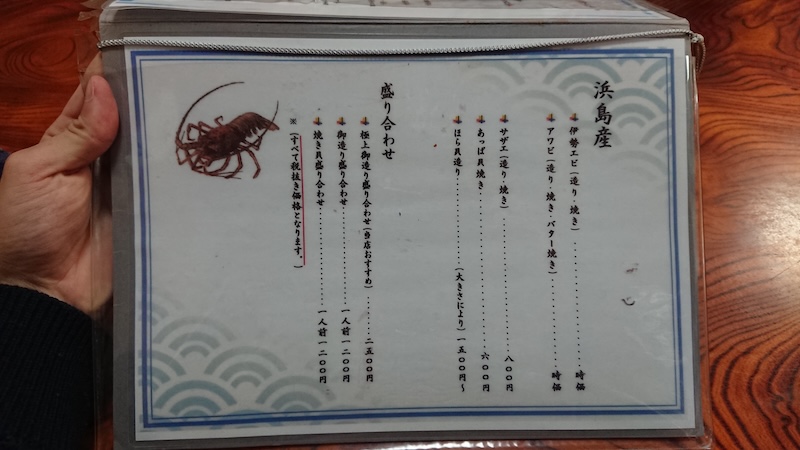 浜島産
伊勢エビ(造り・焼き)……………………時価
アワビ(造り・焼き・バター焼き)……………時価
サザエ(造り・焼き)……………………八〇〇円
あっぱ貝焼き……………………六〇〇円
ほら貝造り……………(大きさにより)一五〇〇円~
盛り合わせ
極上御造り盛り合わせ(当店おすすめ)………二五〇〇円
御造り盛り合わせ……………………一人前一二〇〇円
焼き貝盛り合わせ……………………一人前一二〇〇円
※(すべて税抜き価格となります。)